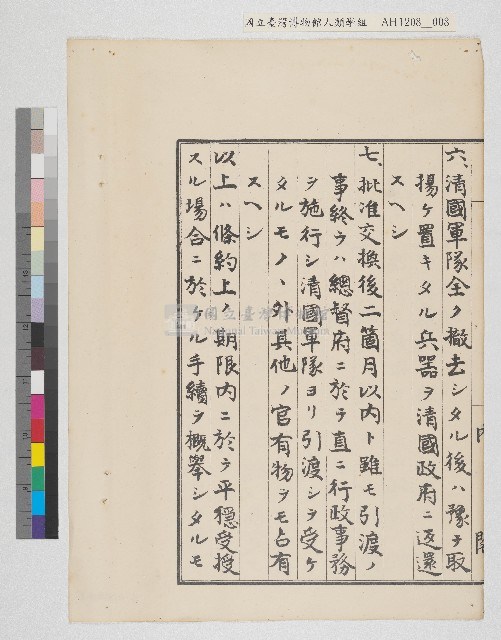 国立臺灣博物館人類學組 AH1208__008
六、清國軍隊全ク撤去シタル後ハ豫テ取
揚ケ置キタル兵器ヲ清國政府ニ返還
スヘシ
七、批准交換後二箇月以内ト雖モ引渡ノ
事終ラハ總督府ニ於テ直ニ行政事務
ヲ施行シ清國軍隊ヨリ引渡シヲ受ケ
タルモノヽ外其他ノ官有物ヲモ占有
スヘシ
以上ハ條約上ノ期限内ニ於テ平穩受授
スル場合ニ於ケル手續ヲ概擧シタルモ
内閣
國立臺灣博物館
National Taiwan Museum